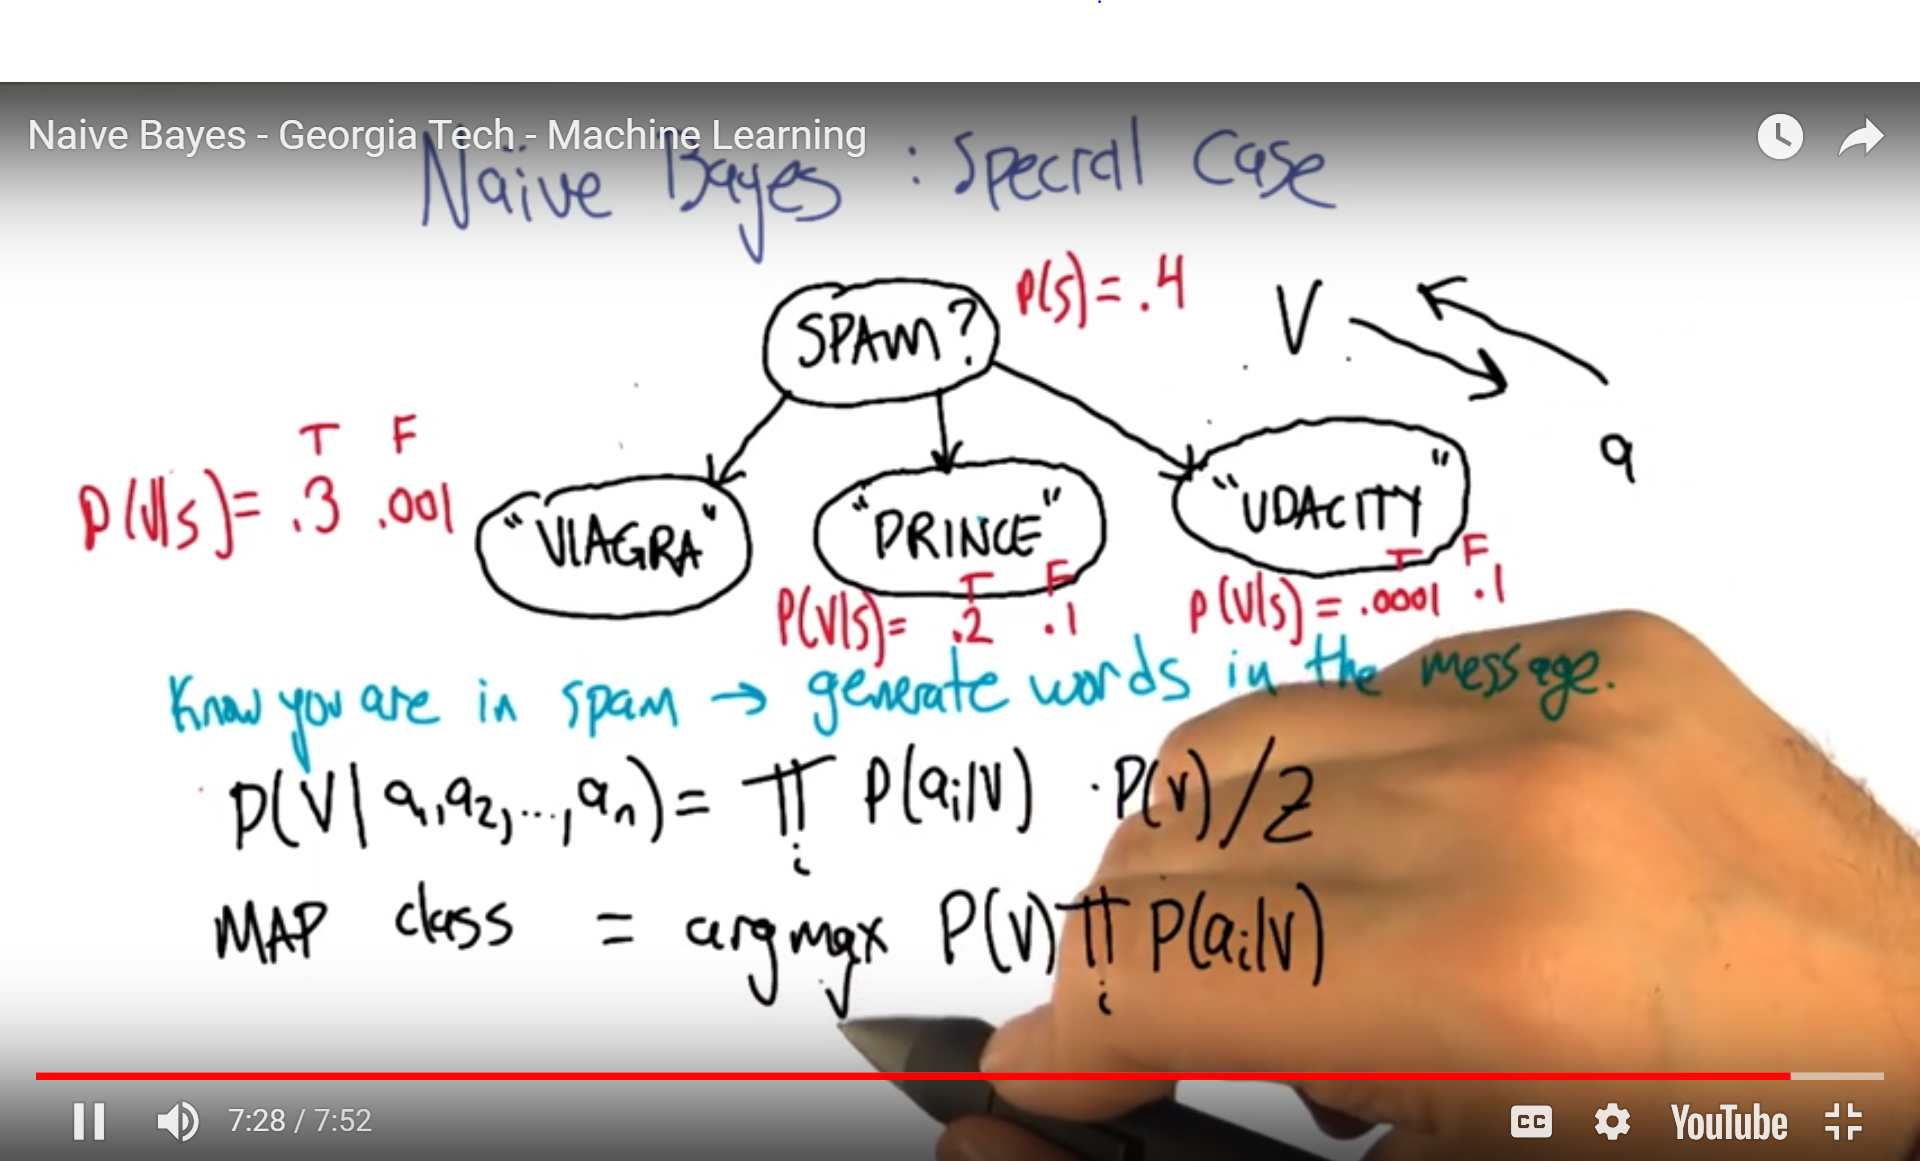 Naive Bayes - Georgia Tech - Machine Learning
Naïve Bayes : Special Case
SPAM?
P(S) = .4
V
a
T F
P(V|S) = .3 .001
"VIAGRA"
"PRINCE"
"UDACITY"
T F
P(V|S) = .2 .1
T F
P(V|S) = .0001 .1
Know you are in spam → generate words in the message.
P(V| a₁, a₂, ..., aₙ) = ∏ᵢ P(aᵢ|V) · P(V) / Z
MAP class = argmax_V P(V) ∏ᵢ P(aᵢ|V)
7:28 / 7:52
CC
YouTube